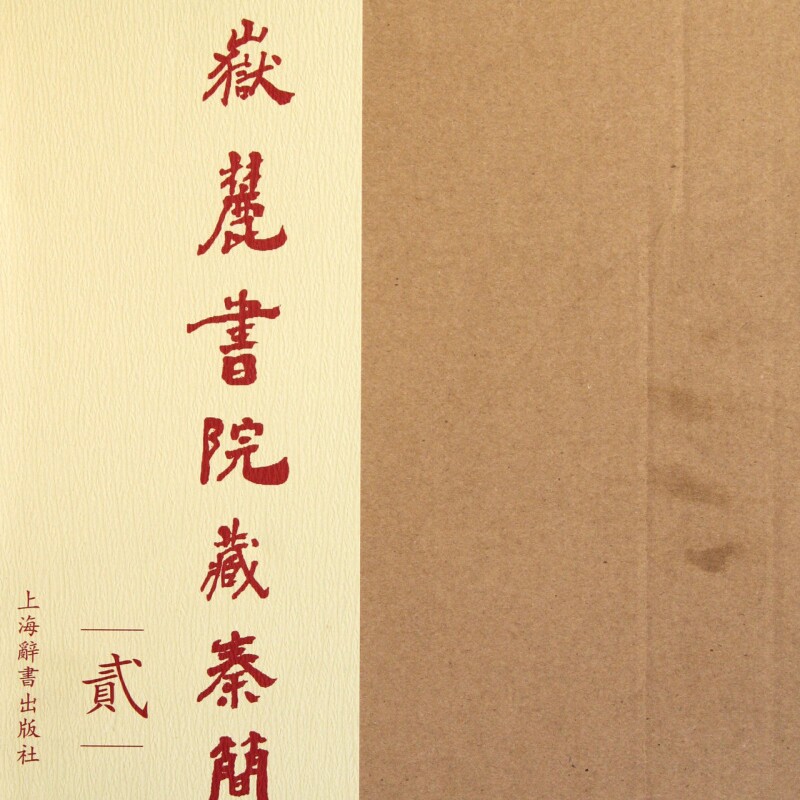 嶽麓書院藏秦簡
貳
上海辭書出版社